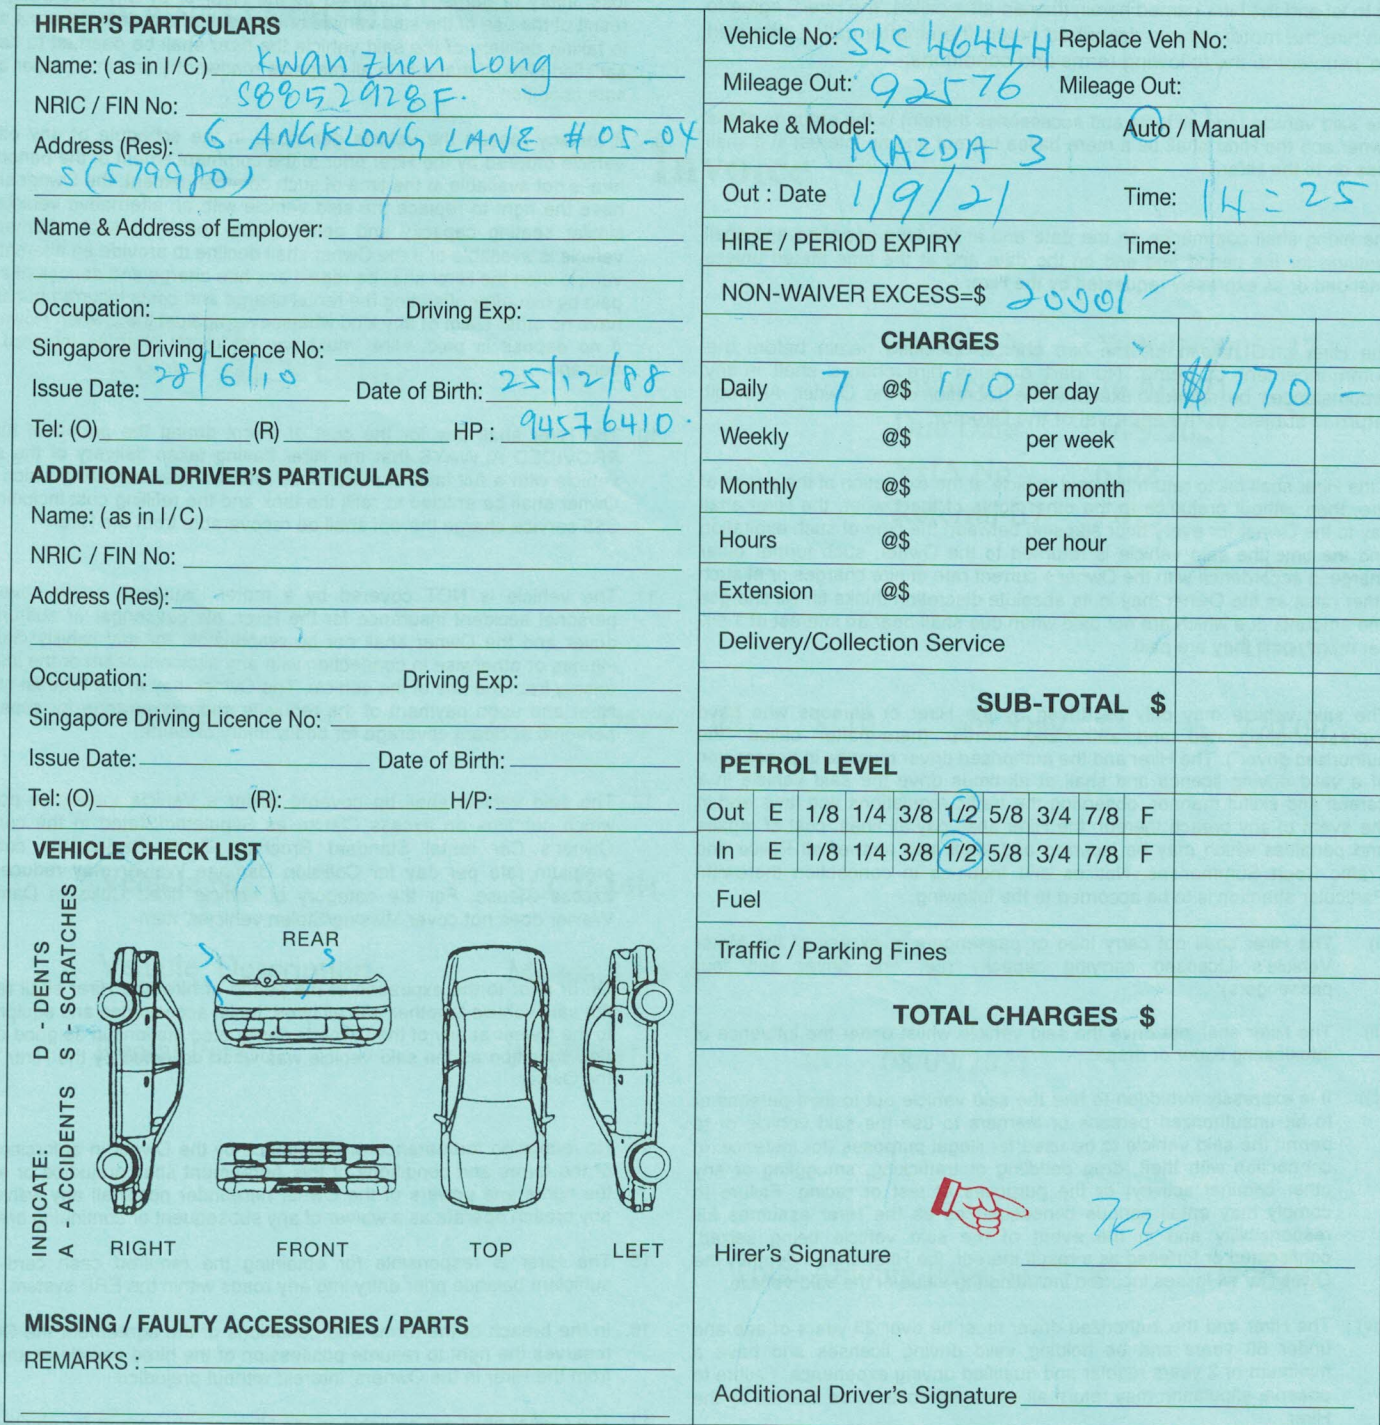 HIRER'S PARTICULARS
Name: (as in I/C) Kwan Zhen Long
NRIC / FIN No: S8852928F.
Address (Res): 6 ANGKLONG LANE #05-04
S(579980)
Name & Address of Employer:
Occupation: Driving Exp:
Singapore Driving Licence No:
Issue Date: 28/6/10 Date of Birth: 25/12/88
Tel: (O) (R) HP: 94576410.
ADDITIONAL DRIVER'S PARTICULARS
Name: (as in I/C)
NRIC / FIN No:
Address (Res):
Occupation: Driving Exp:
Singapore Driving Licence No:
Issue Date: Date of Birth:
Tel: (O) (R): H/P:
VEHICLE CHECK LIST
INDICATE: D - DENTS
A - ACCIDENTS S - SCRATCHES
REAR
S S
RIGHT FRONT TOP LEFT
MISSING / FAULTY ACCESSORIES / PARTS
REMARKS :
Vehicle No: SLC 4644H Replace Veh No:
Mileage Out: 92576 Mileage Out:
Make & Model: MAZDA 3 Auto / Manual
Out : Date 1/9/21 Time: 14:25
HIRE / PERIOD EXPIRY Time:
NON-WAIVER EXCESS=$ 2000/
CHARGES
Daily 7 @$ 110 per day $770
Weekly @$ per week
Monthly @$ per month
Hours @$ per hour
Extension @$
Delivery/Collection Service
SUB-TOTAL $
PETROL LEVEL
Out E 1/8 1/4 3/8 1/2 5/8 3/4 7/8 F
In E 1/8 1/4 3/8 1/2 5/8 3/4 7/8 F
Fuel
Traffic / Parking Fines
TOTAL CHARGES $
Hirer's Signature
Additional Driver's Signature